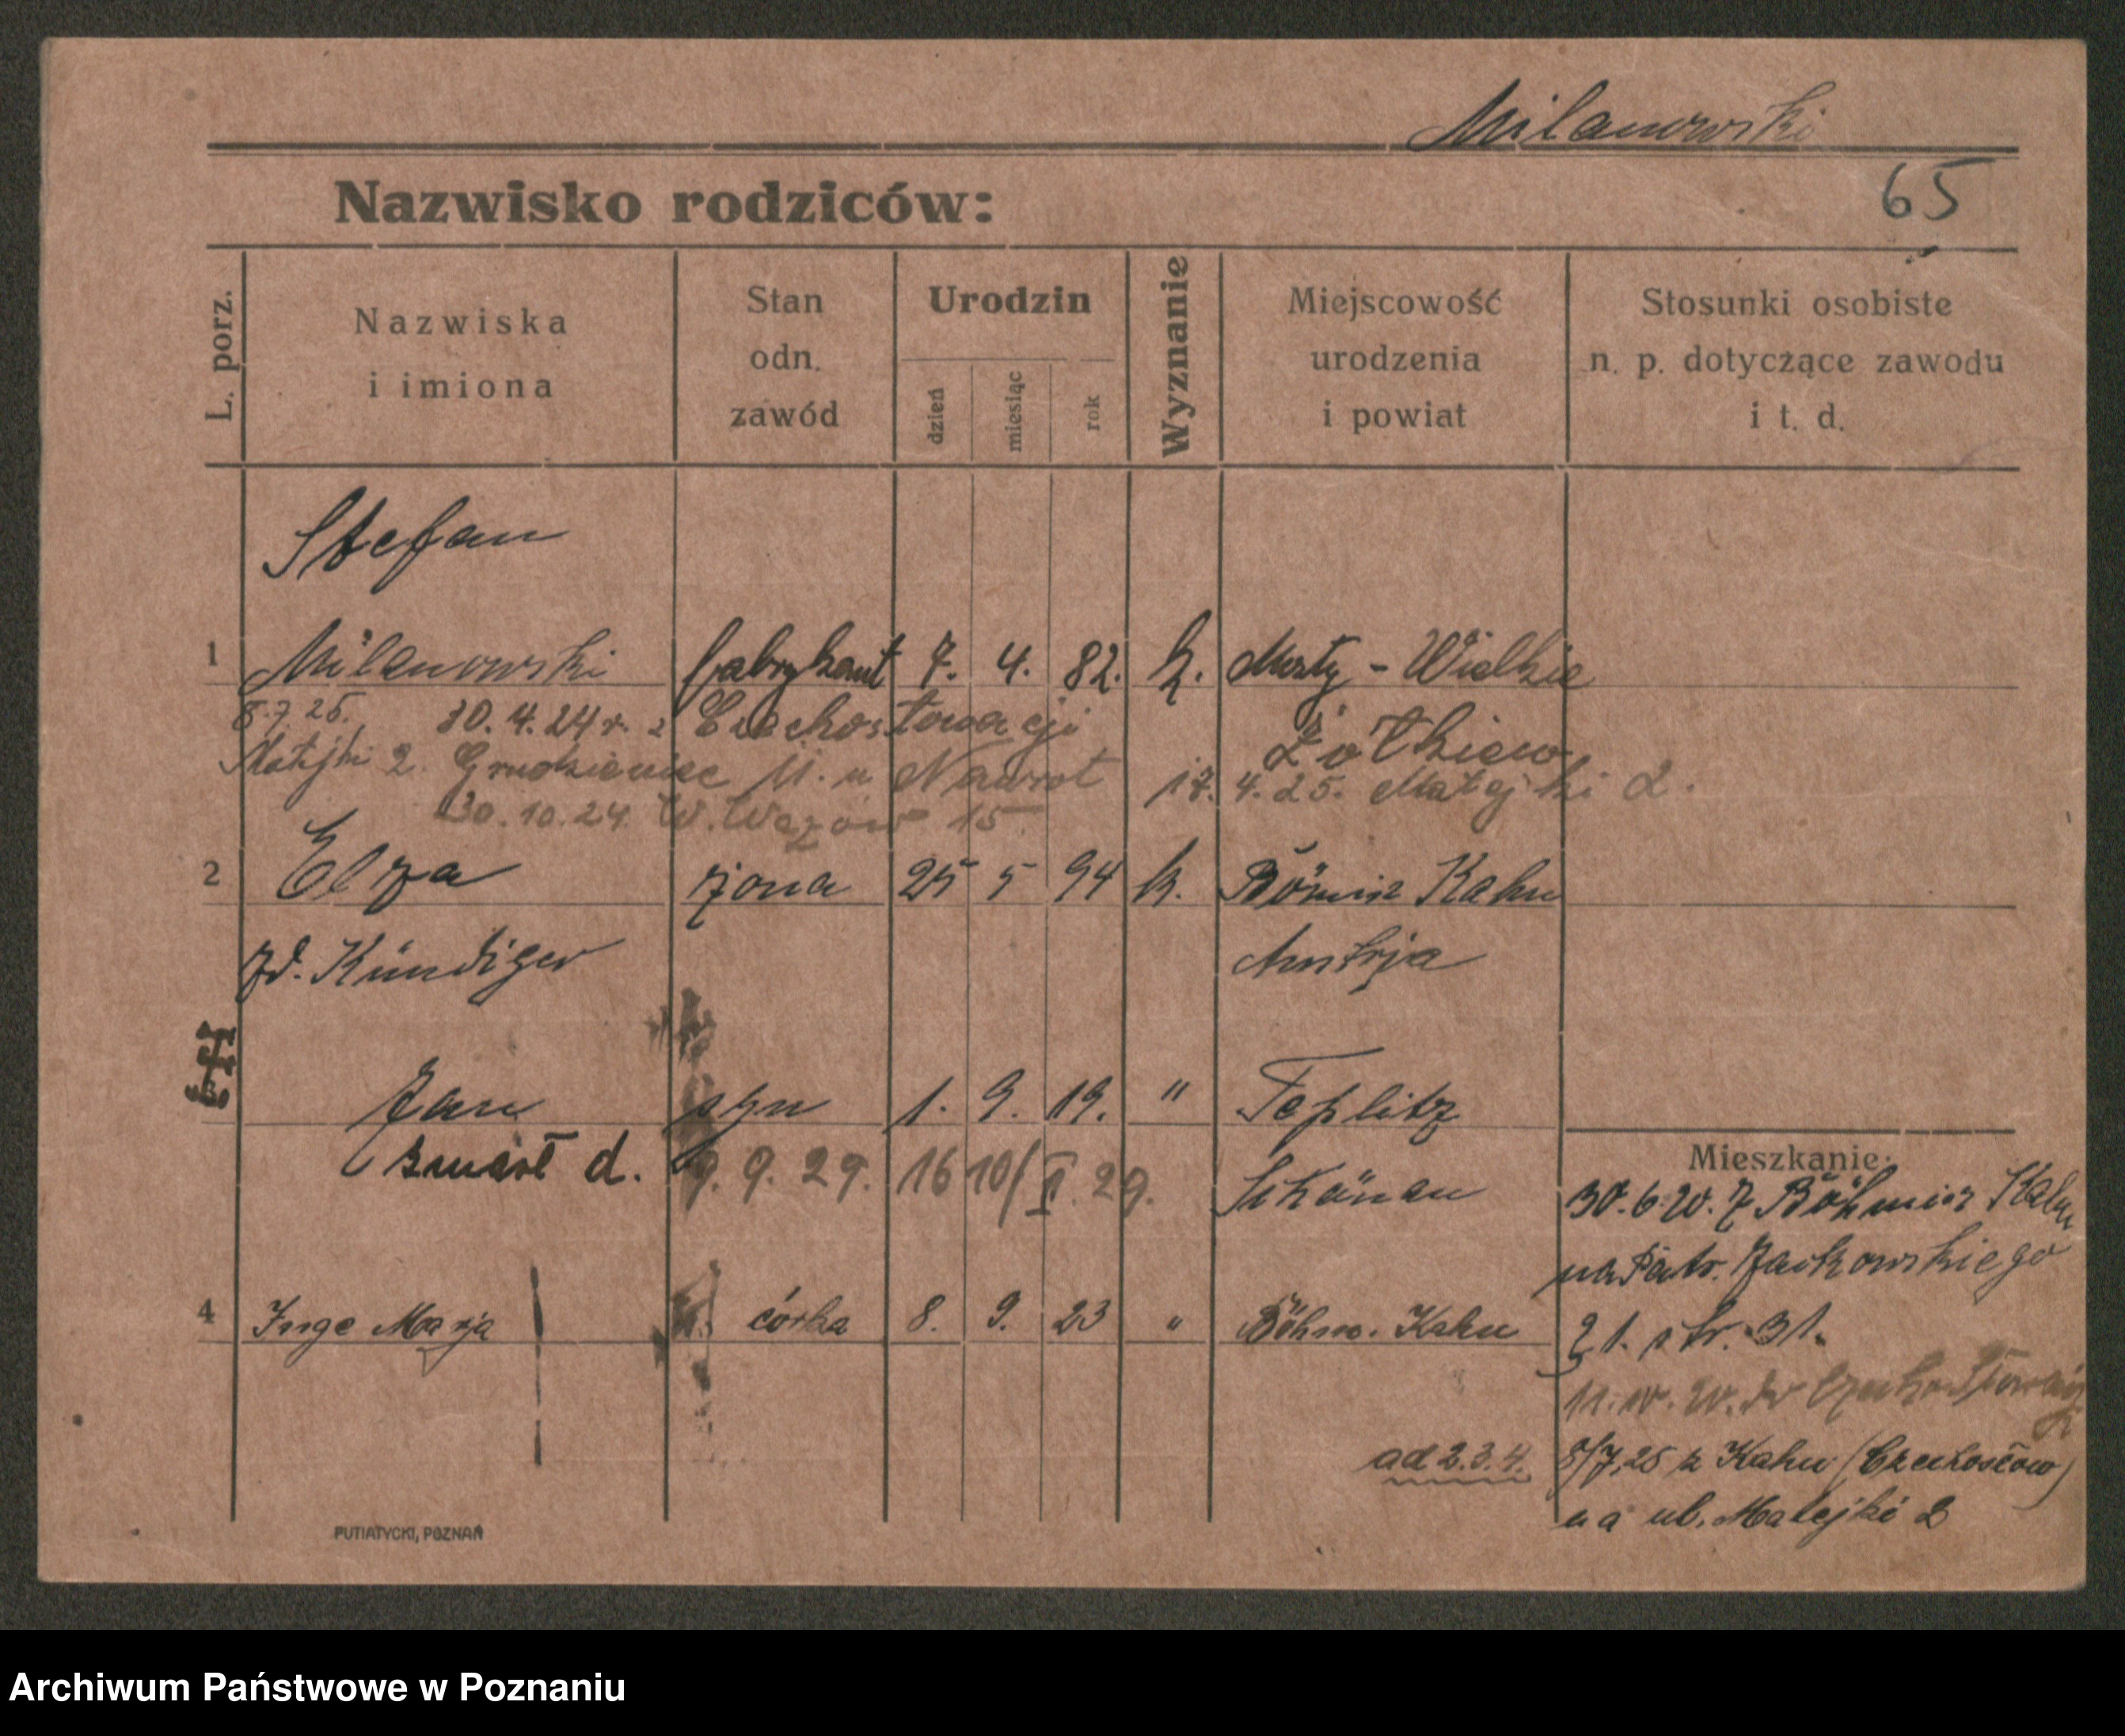 Milanowski
Nazwisko rodziców:
65
L. porz.
Nazwiska
i imiona
Stan
odn.
zawód
Urodzin
dzień
miesiąc
rok
Wyznanie
Miejscowość
urodzenia
i powiat
Stosunki osobiste
n. p. dotyczące zawodu
i t. d.
Stefan
1 Milanowski fabrykant 7. 4. 82. k. Mosty - Wielkie
8.7 25. 30.4.24 r. z Czechosłowacji Żółkiew
Matejki 2. Grudzieniec 11. u Nawrot 17. 4. 25. Matejki 2.
30.10.24 W. Wazów 15
2 Elza żona 25 5 94 k. Böhmisch Kahn
zd. Kündiger Austrja
Jan syn 1. 9. 19. " Teplitz
zmarł d. 9. 9. 29. 16 10/II. 29. Schönau
4 Inge Marja córka 8. 9. 23 " Böhm. Kahn
Mieszkanie:
30.6.20. z Böhmisch Kahn
na Patr. Jackowskiego
31. str. 31.
11. 10. 20. do Czechosłowacji
ad 2.3.4. 8/7.25 z Kahn (Czechosłow)
na ul. Matejki 2
PUTIATYCKI, POZNAŃ
Archiwum Państwowe w Poznaniu